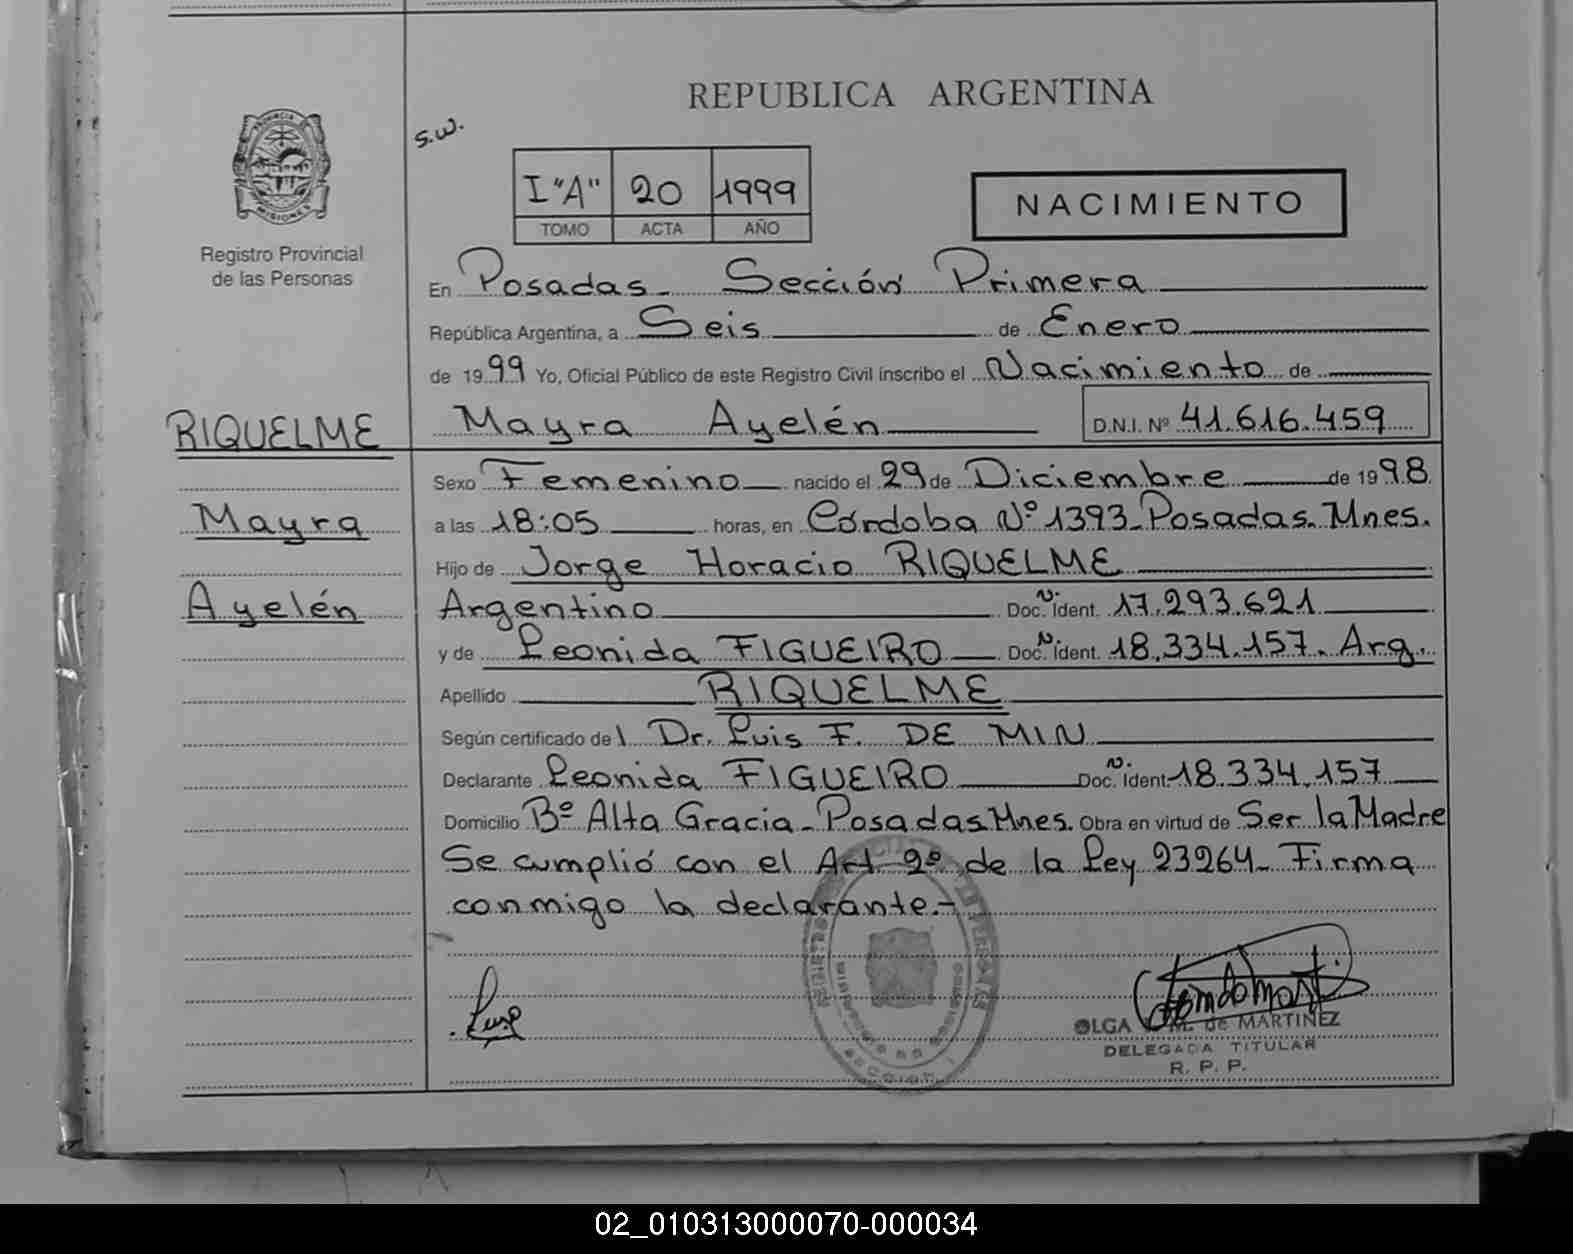 REPUBLICA ARGENTINA
S.W.
PROVINCIA
MISIONES
I "A" 20 1999
TOMO ACTA AÑO
NACIMIENTO
Registro Provincial
de las Personas
En Posadas - Sección Primera
República Argentina, a Seis de Enero
de 1999 Yo, Oficial Público de este Registro Civil inscribo el Nacimiento de
RIQUELME
Mayra Ayelén D.N.I. Nº 41.616.459
Sexo Femenino nacido el 29 de Diciembre de 1998
Mayra
a las 18:05 horas, en Córdoba Nº 1393-Posadas. Mnes.
Hijo de Jorge Horacio RIQUELME
Ayelén
Argentino Doc. N. Ident. 17.293.621
y de Leonida FIGUEIRO Doc. N. Ident. 18.334.157. Arg.
Apellido RIQUELME
Según certificado del Dr. Luis F. DE MIN
Declarante Leonida FIGUEIRO Doc. N. Ident. 18.334.157
Domicilio Bº Alta Gracia - Posadas Mnes. Obra en virtud de Ser la Madre
Se cumplió con el Art 2º de la Ley 23264- Firma
conmigo la declarante.-
OLGA M. de MARTINEZ
DELEGADA TITULAR
R. P. P.
02_010313000070-000034